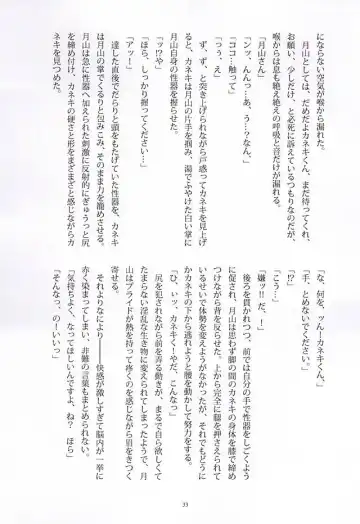 にならない空気が喉から漏れた。
月山としては、だめだよカネキくん、まだ待ってくれ、
お願い、少しだけ、と必死に訴えているつもりなのだが、
喉からは息も絶え絶えの呼吸と音だけが漏れる。
「月山さん」
「ンッ、んんっ…あ、う…？なん、」
「ココ…触って」
「っぅ、え」
ず、ず、と突き上げられながら戸惑ってカネキを見上げ
ると、カネキは月山の片手を掴み、湯でふやけた白い掌に
月山自身の性器を握らせた。
「ッ!?や」
「ほら、しっかり握ってください…」
「アッ！」
達した直後でだらりと頭をもたげていた性器を、カネキ
は月山の掌でくるりと包みこみ、そのまま力を籠めさせる。
月山は急に性器へ加えられた刺激に反射的にぎゅうっと尻
を締め付け、カネキの硬さと形をまざまざと感じながらカ
ネキを見つめた。
「な、何を、ッんーカネキくん」
「手、とめないでください」
「!?」
「こう…」
「嫌ッ!!だ、ー」
後ろを貫かれつつ、前では自分の手で性器をしごくよう
に促され、月山は思わず脚の間のカネキの身体を膝で締め
つけながら背を反らせた。上から完全に腿を押さえられて
いるせいで体勢を変えようがなかったが、それでもどうに
かカネキの下から逃れようと腰を動かして努力をする。
「ひ、ぃッ、カネキくーやだ、こんなっ」
尻を犯されながら前を弄る動きが、まるで自ら欲しくて
たまらない淫乱な生き物に変えられてしまったようで、月
山はプライドが熱を持って疼くのを感じながら眉をきつく
寄せる。
それよりなにより――快感が激しすぎて脳内が一挙に
赤く染まってしまい、非難の言葉もまとめられない。
「気持ちよく、なってほしいんですよ、ね？　ほら」
「そんなっ、のーいいっ」
33